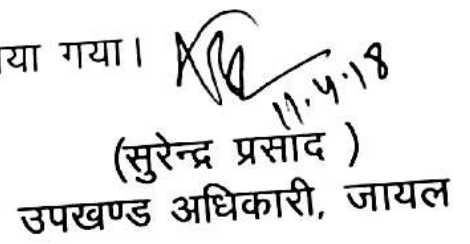 या गया।
11.4.18
(सुरेन्द्र प्रसाद )
उपखण्ड अधिकारी, जायल